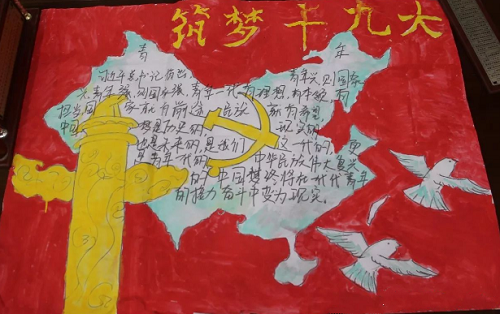 筑梦十九大
青 年
习近平总书记指出 青年兴则国家
兴,青年强则国家强,青年一代有理想,有本领,有
担当国 家就有前途 民族 就有希望
中国 梦是历史的, 现实的
也是未来的,是我们 这一代的,更
是青年一代的, 中华民族伟大复兴
的中国梦终将在一代代青年
的接力奋斗中变为现实。